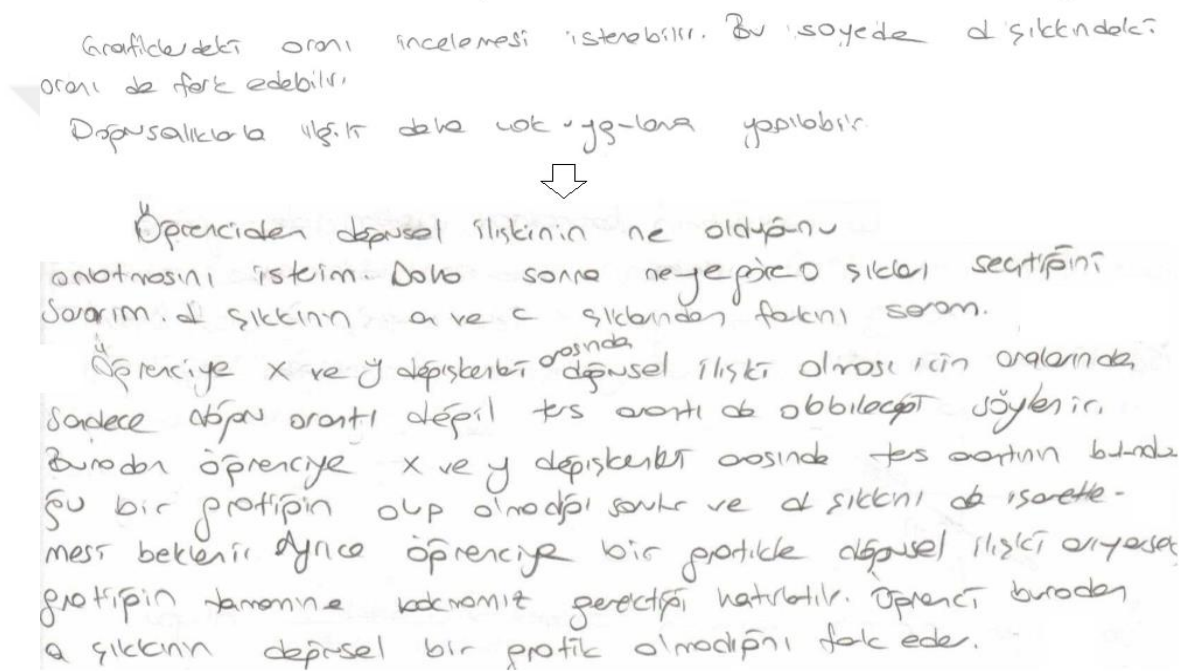 Grafiklerdeki oranı incelemesi istenebilir. Bu sayede d şıkkındaki
oranı da fark edebilir.
Doğrusallıkla ilgili daha çok uygulama yapılabilir.
Öğrenciden doğrusal ilişkinin ne olduğunu
anlatmasını isterim. Daha sonra neye göre o şıkları seçtiğini
sorarım. d şıkkının a ve c şıklarından farkını sorarım.
Öğrenciye x ve y değişkenleri arasında doğrusal ilişki olması için aralarında
sadece doğru orantı değil ters orantı da olabileceği söylenir.
Buradan öğrenciye x ve y değişkenleri arasında ters orantının bulundu-
ğu bir grafiğin olup olmadığı sorulur ve d şıkkını da işaretle-
mesi beklenir. Ayrıca öğrenciye bir grafikte doğrusal ilişki arıyorsak
grafiğin tamamına bakmamız gerektiği hatırlatılır. Öğrenci buradan
a şıkkının doğrusal bir grafik olmadığını fark eder.